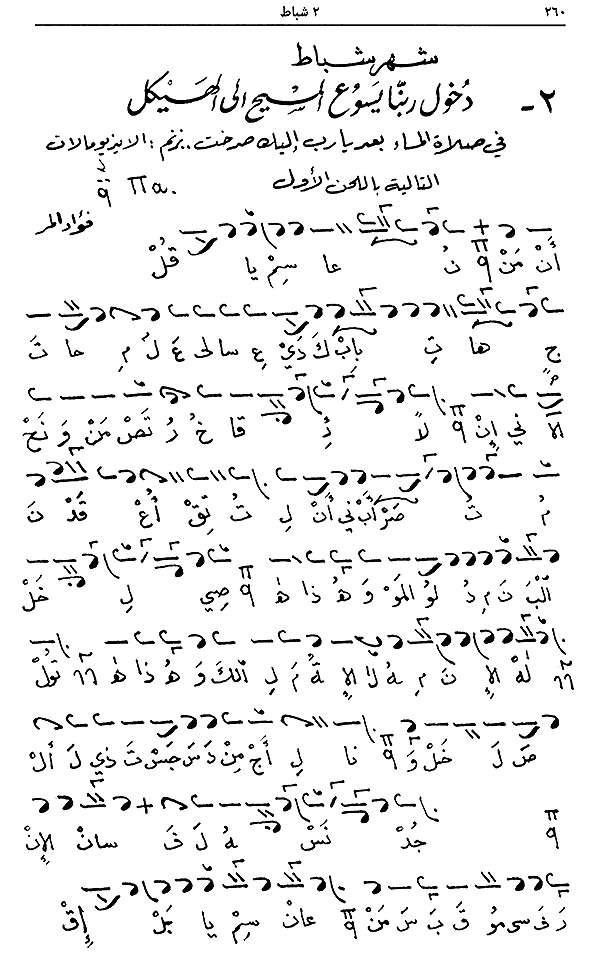 ٢٦٠ ٢ شباط
شهر شباط
٢ـ دُخول ربّنا يَسوُع المسِيح الى الهَيْكل
في صلاة المساء بعد يارب إليك صرخت . نرنم : الايذيومالات
التالية باللحن الأول
فؤاد المر
أَنْ مَنْ نُ عا سِمْ يا قُلْ
جِ ها تِ بابْ كَ ذَيْ عِ سا لى عَ لَ مِ حا تَ
لآ ني إِنْ لاً ذِ قا خُ رُ تَصْ مَنْ وَ نَحْ
مُ تُ صَرْ أَبْ ني أَنْ لِ تُ تِقْ أُعْ قَدْ نَ
اَلْبَ نَ مِ دُ لو المَوْ وَ هُ ذا هٰ صِي لِ خَلْ
لٰهْ الإِ نَ مِ هُ لٰا الإِ ةُ مَ لِ اَلكَ وَ هُ ذا هٰ تولْ
صَ لَ خَلْ وَ نا لِ أَجْ مِنْ دَ سَ جَسْ تَ ذي لَ أَلْ
جُدْ نَسْ هُ لَ فَ سانْ الإِنْ
رَ فَ سى مو قَ بَ سَ مَنْ عانْ سِمْ يا بَلْ إِقْ